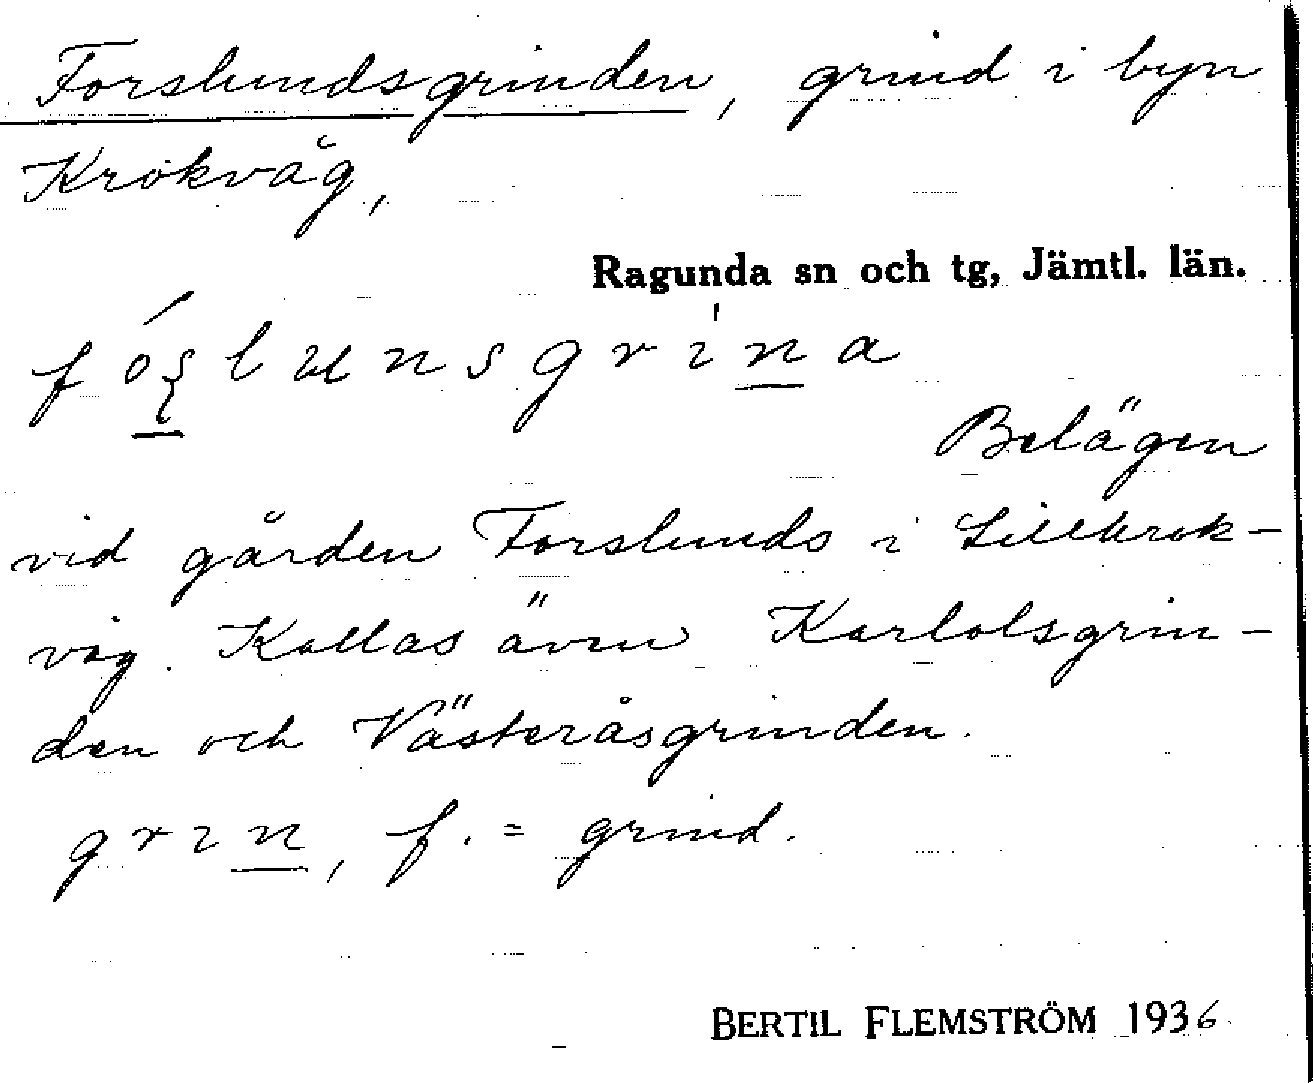 Forslundsgrinden, grind i byn
Krokvåg,
Ragunda sn och tg, Jämtl. län.
Belägen
vid gården Forslunds i Lillkrok-
våg. Kallas även Karlolsgrin-
den och Västeråsgrinden.
grin, f. = grind.
BERTIL FLEMSTRÖM 1936